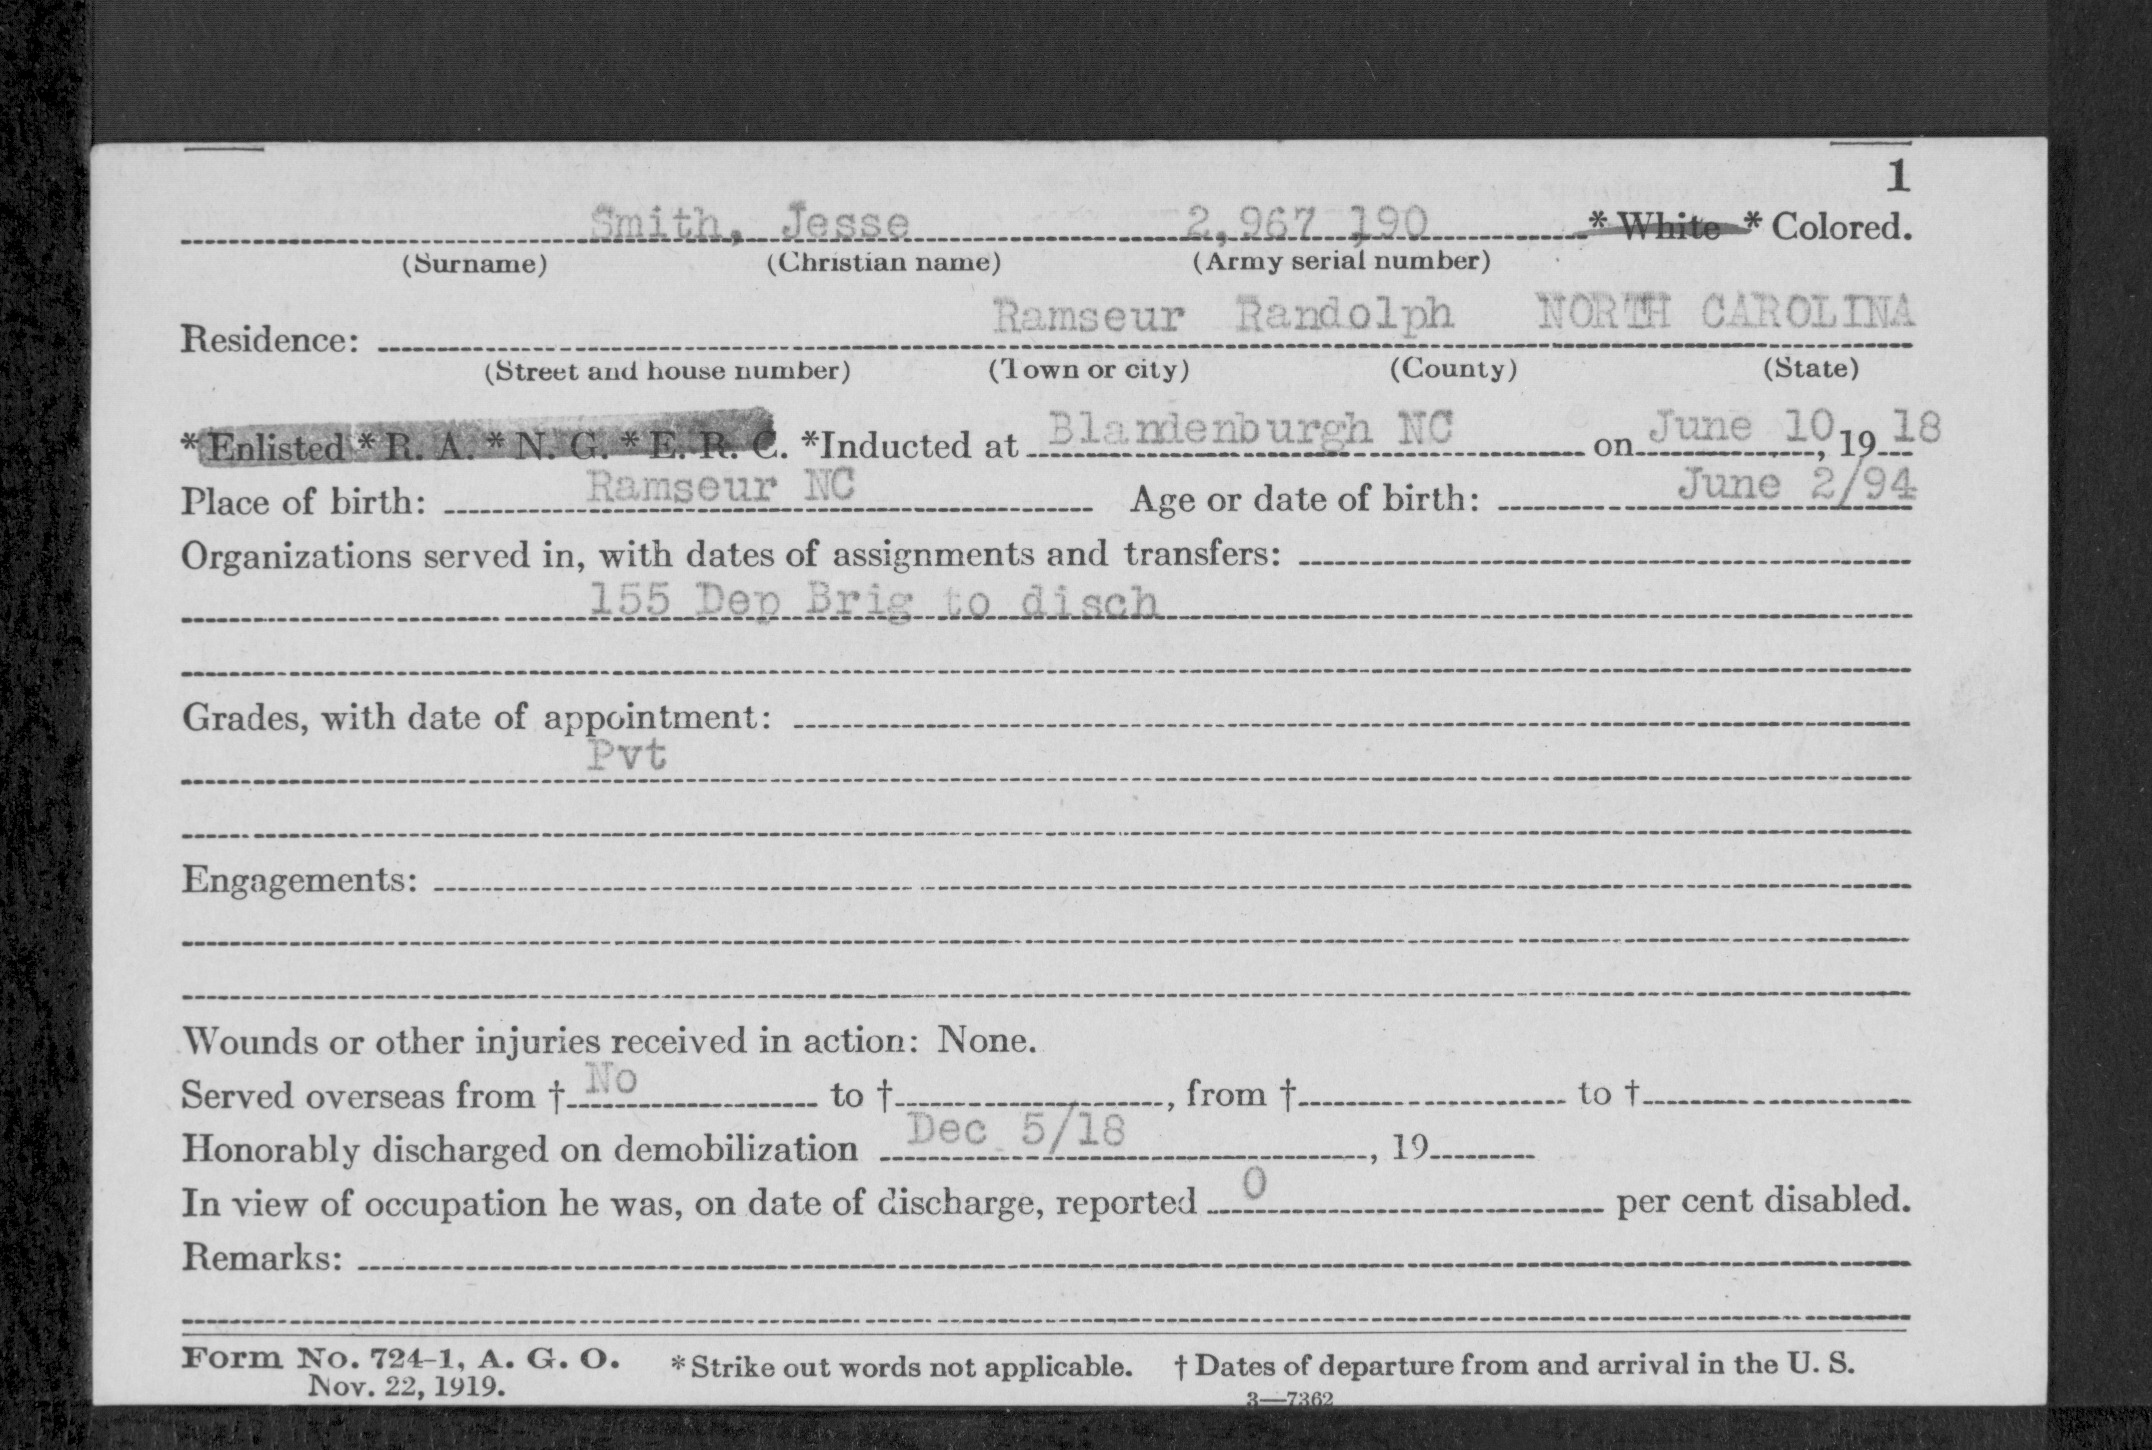 1
Smith, Jesse 2,967,190 * White * Colored.
(Surname) (Christian name) (Army serial number)
Residence: Ramseur Randolph NORTH CAROLINA
(Street and house number) (Town or city) (County) (State)
* Enlisted * R. A. * N. G. * E. R. C. *Inducted at Blandenburgh NC on June 10, 19 18
Place of birth: Ramseur NC Age or date of birth: June 2/94
Organizations served in, with dates of assignments and transfers:
155 Dep Brig to disch
Grades, with date of appointment:
Pvt
Engagements:
Wounds or other injuries received in action: None.
Served overseas from † No to †, from † to †
Honorably discharged on demobilization Dec 5/18, 19
In view of occupation he was, on date of discharge, reported 0 per cent disabled.
Remarks:
Form No. 724-1, A. G. O. * Strike out words not applicable. † Dates of departure from and arrival in the U. S.
Nov. 22, 1919. 3—7362